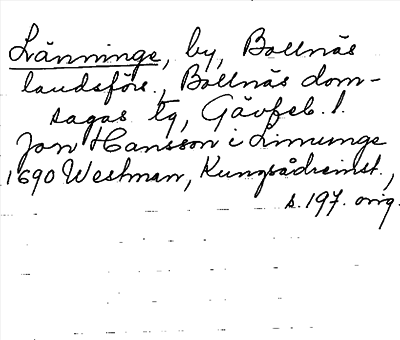 Länninge, by, Bollnäs
landsförs., Bollnäs dom-
sagas tg, Gävleb. l.
Jon Hansson i Linunge
1690 Westman, Kungsådreinst.,
s. 197. orig.